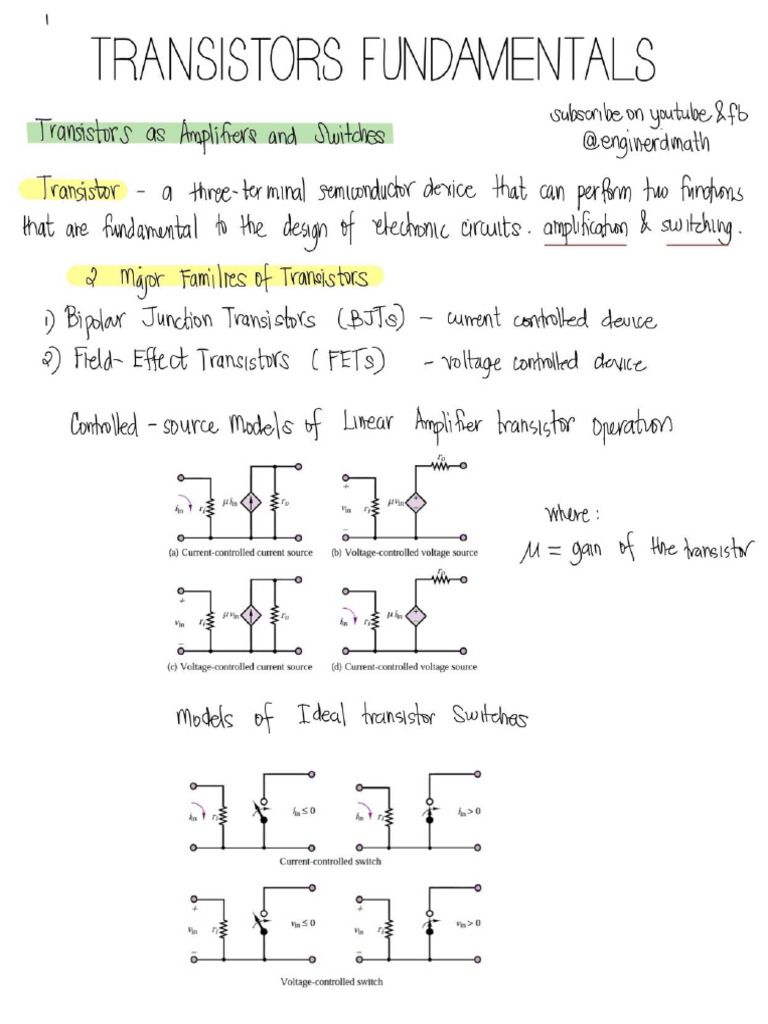 1
TRANSISTORS FUNDAMENTALS
subscribe on youtube & fb
@enginerdmath
Transistors as Amplifiers and Switches
Transistor - a three-terminal semiconductor device that can perform two functions
that are fundamental to the design of electronic circuits. amplification & switching.
2 Major Families of Transistors
1) Bipolar Junction Transistors (BJTs) - current controlled device
2) Field-Effect Transistors (FETs) - voltage controlled device
Controlled-source Models of Linear Amplifier transistor operation
iin ri μiin ro
(a) Current-controlled current source
+ vin − ri μvin + − ro
(b) Voltage-controlled voltage source
where:
μ = gain of the transistor
+ vin − ri μvin ro
(c) Voltage-controlled current source
iin ri μiin + − ro
(d) Current-controlled voltage source
Models of Ideal transistor Switches
iin ri iin ≤ 0
iin ri iin > 0
Current-controlled switch
+ vin − ri vin ≤ 0
+ vin − ri vin > 0
Voltage-controlled switch